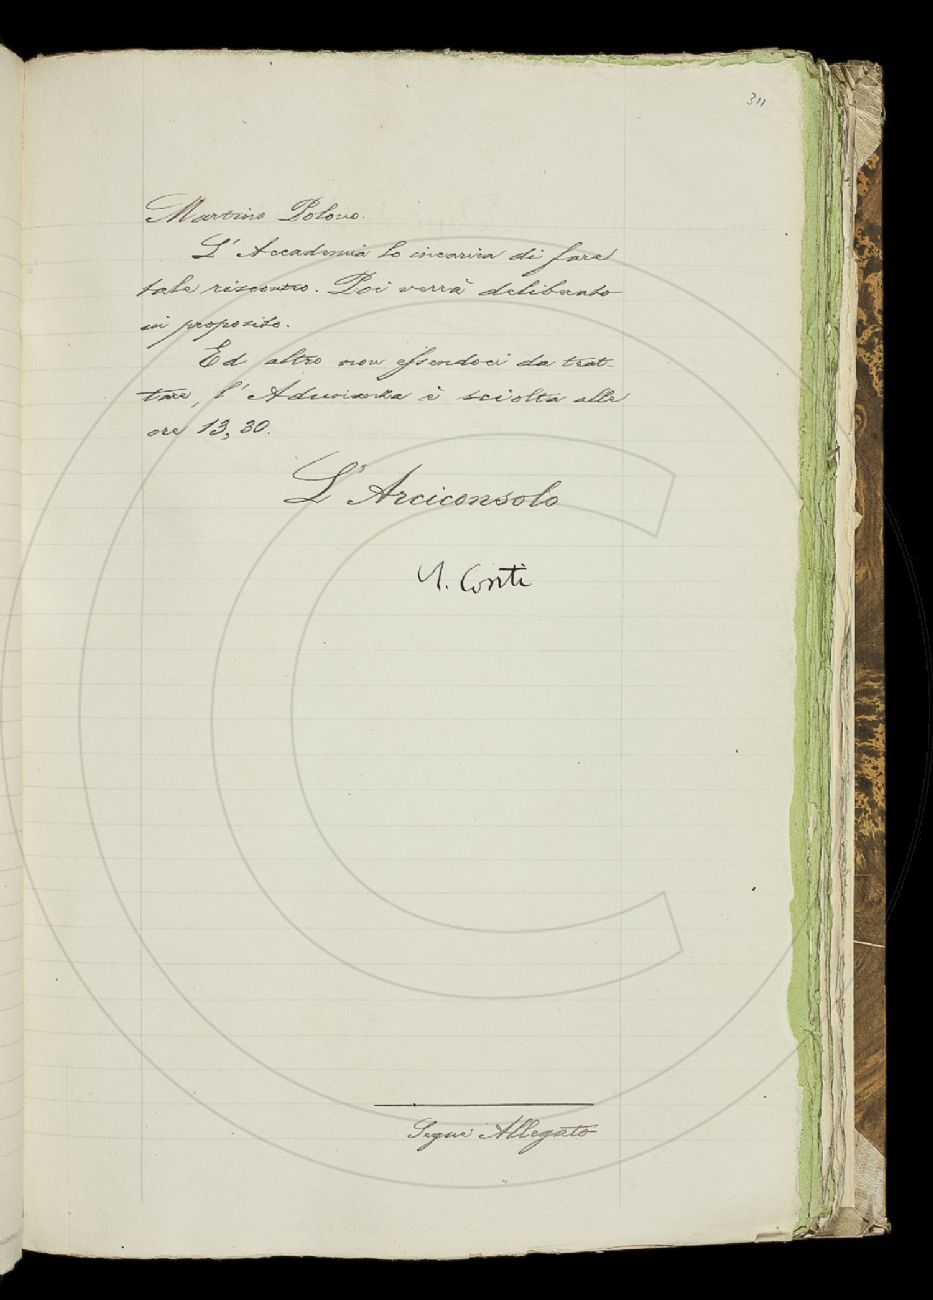 311
Martino Polono.
L' Accademia lo incarica di fare
tale riscontro. Poi verrà deliberato
in proposito.
Ed altro non essendoci da trat-
tare, l' Adunanza è sciolta alle
ore 13,30.
L' Arciconsolo
A. Conti
Segue Allegato